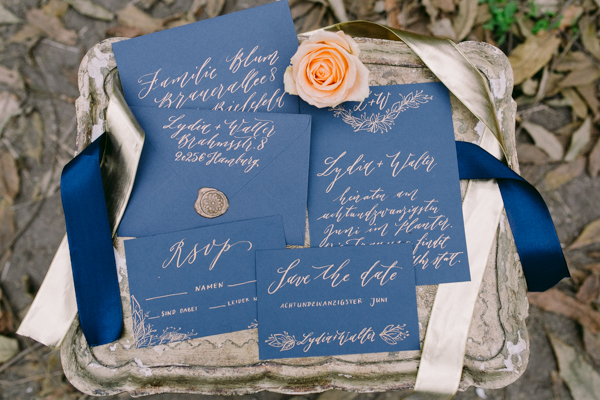 Familie Blum
Brauerallee 8
Bielefeld
Lydia + Walter
Brahmsstr. 8
20256 Hamburg
+W
Lydia + Walter
heiraten am
achtundzwanzigsten
Juni im Kloster
findet
statt.
RSVP
NAMEN
SIND DABEI
LEIDER N
Save the date
ACHTUNDZWANZIGSTER JUNI
Lydia + Walter